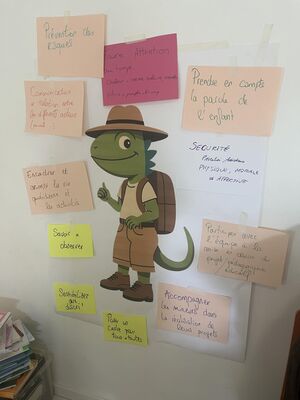 Prévention des
risques
Faire Attention
au temps
Prendre en compte
la parole de
l'enfant
Communication
et relation entre
les différents acteurs
SECURITÉ
PHYSIQUE, MORALE
et AFFECTIVE
Encadrer et
animer la vie
quotidienne et
les activités
Savoir
observer
Participer avec
l'équipe à la
mise en œuvre du
projet pédagogique
Sensibiliser
Poser un
cadre pour
tous·toutes
Accompagner
les mineurs dans
la réalisation de
leurs projets